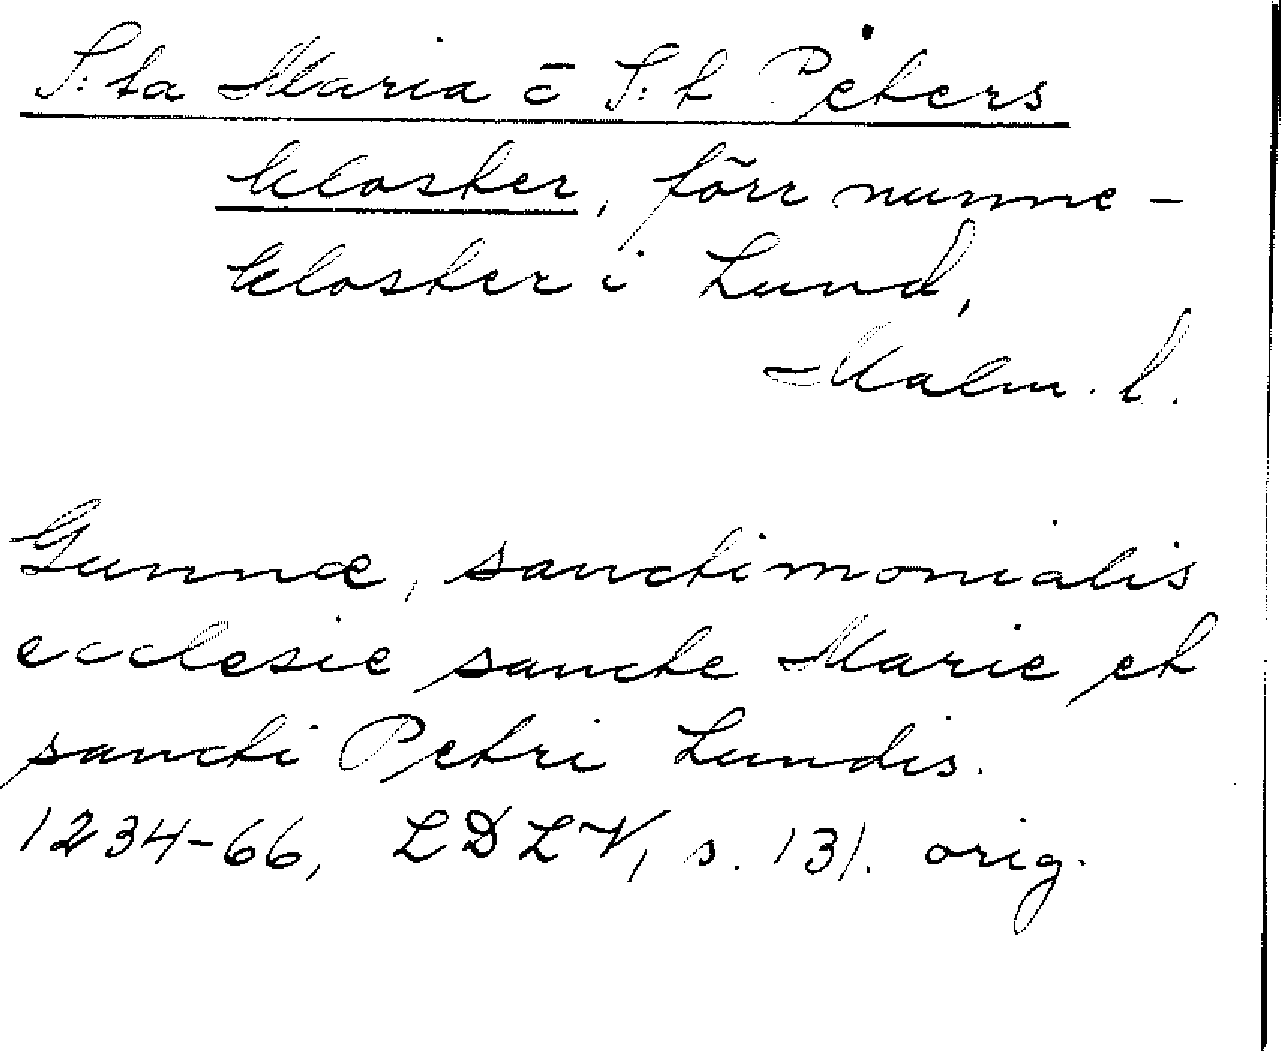 S:ta Maria o S:t Peters
kloster, förr nunne-
kloster i Lund,
Malm. l.
Gunnæ, sanctimonialis
ecclesie sancte Marie et
sancti Petri Lundis.
1234-66, LDLV, s. 131. orig.